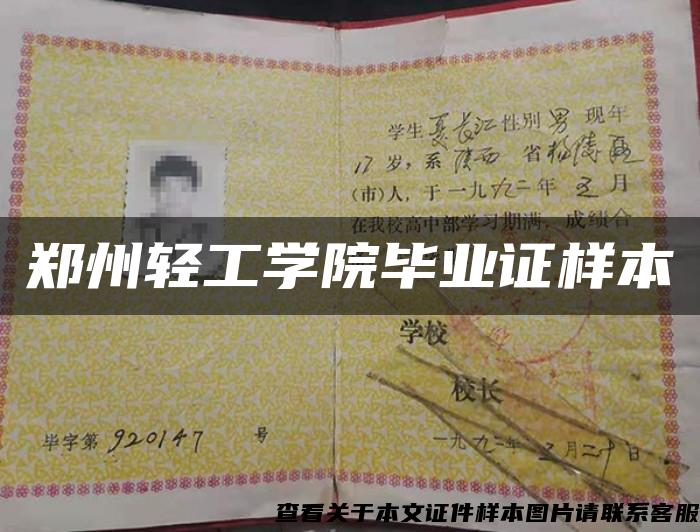 学生夏长江性别男现年
17岁,系陕西省
(市)人,于一九九二年五月
在我校高中部学习期满,成绩合
郑州轻工学院毕业证样本
学校
校长
毕字第920147号
一九九二年五月二十日
查看关于本文证件样本图片请联系客服